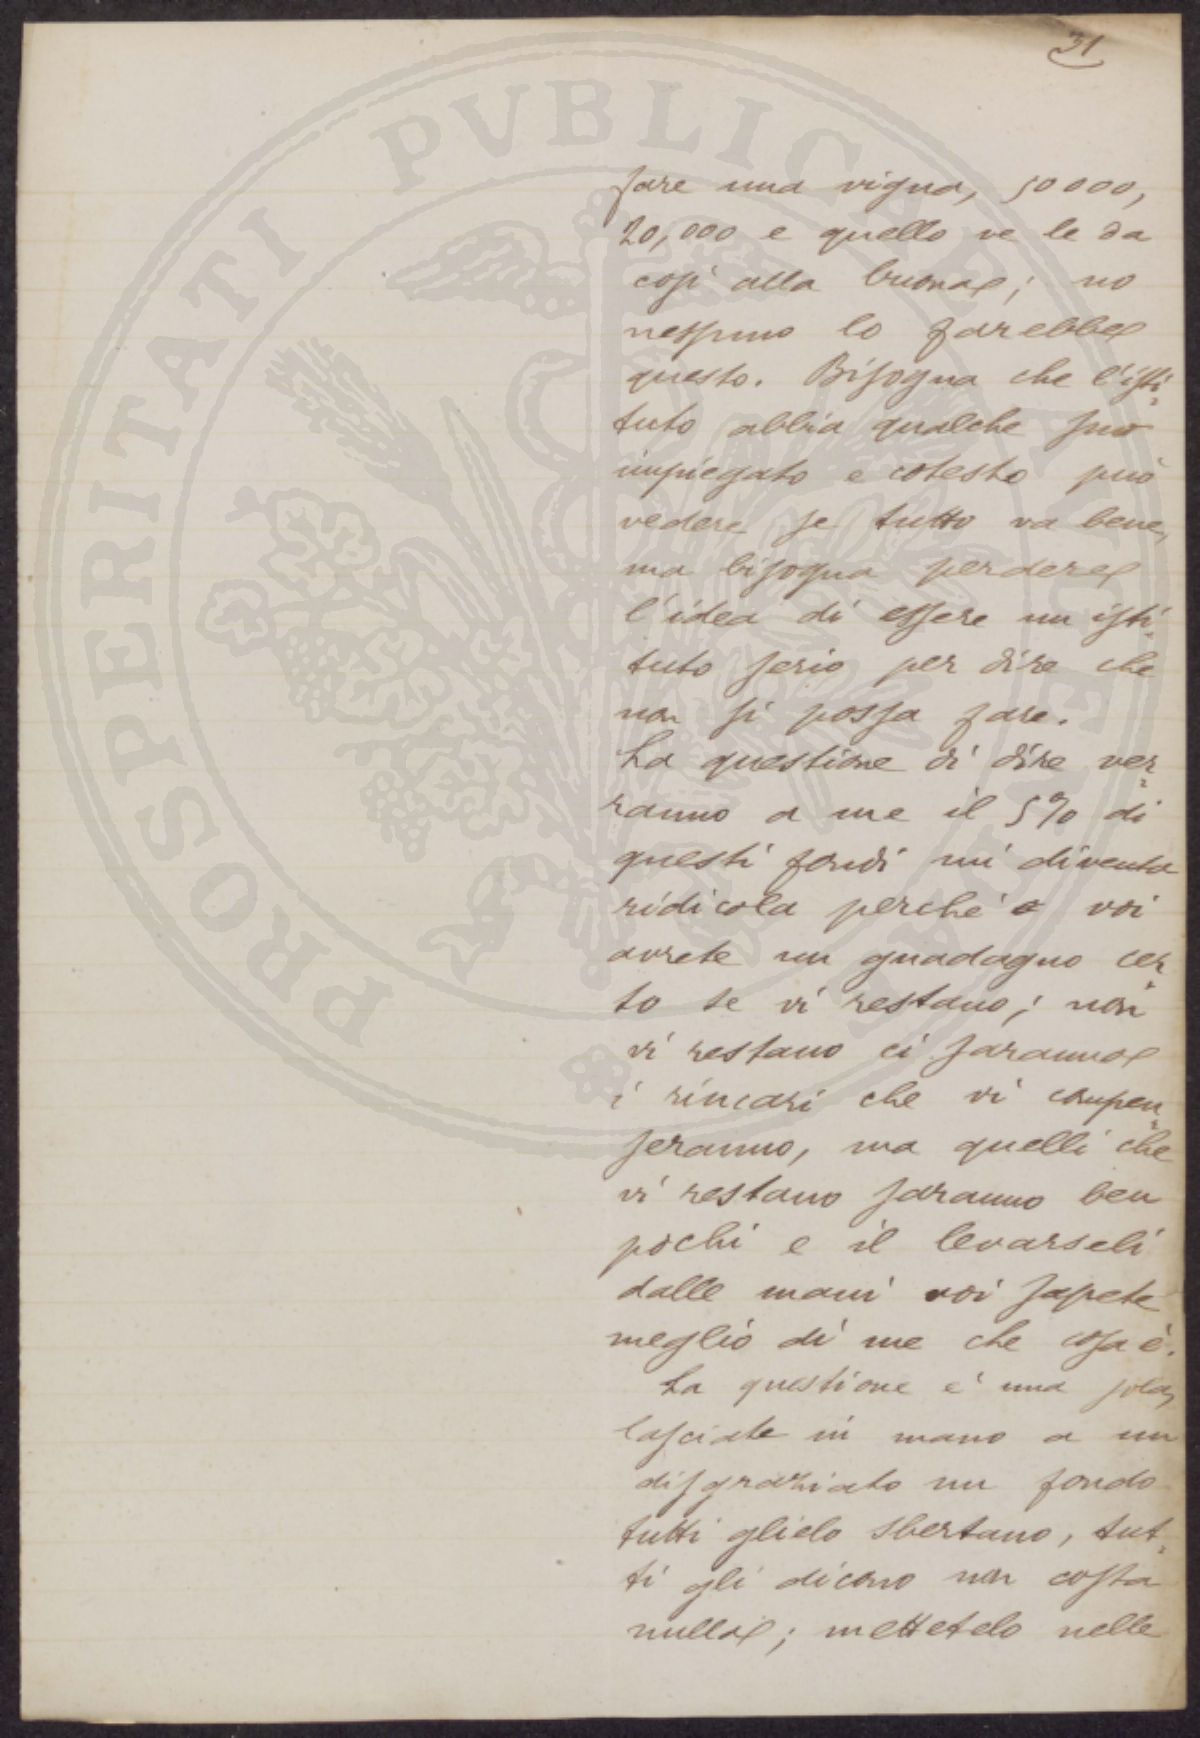 31
PROSPERITATI PVBLICAE AVGENDAE
fare una vigna, 50000,
20,000 e quello ve le da
così alla buona; no
nessuno lo farebbe
questo. Bisogna che l'isti=
tuto abbia qualche suo
impiegato e cotesto può
vedere se tutto va bene,
ma bisogna perdere
l'idea di essere un isti=
tuto serio per dire che
non si possa fare.
La questione di dire ver=
ranno a me il 5% di
questi fondi mi diventa
ridicola perchè o voi
avrete un guadagno cer=
to se vi restano; non
vi restano ci saranno
i rincari che vi compen=
seranno, ma quelli che
vi restano saranno ben
pochi e il levarseli
dalle mani voi sapete
meglio di me che cosa è.
La questione è una sola,
lasciate in mano a un
disgraziato un fondo
tutti glielo sbertano, tut=
ti gli dicono non costa
nulla; mettetelo nelle